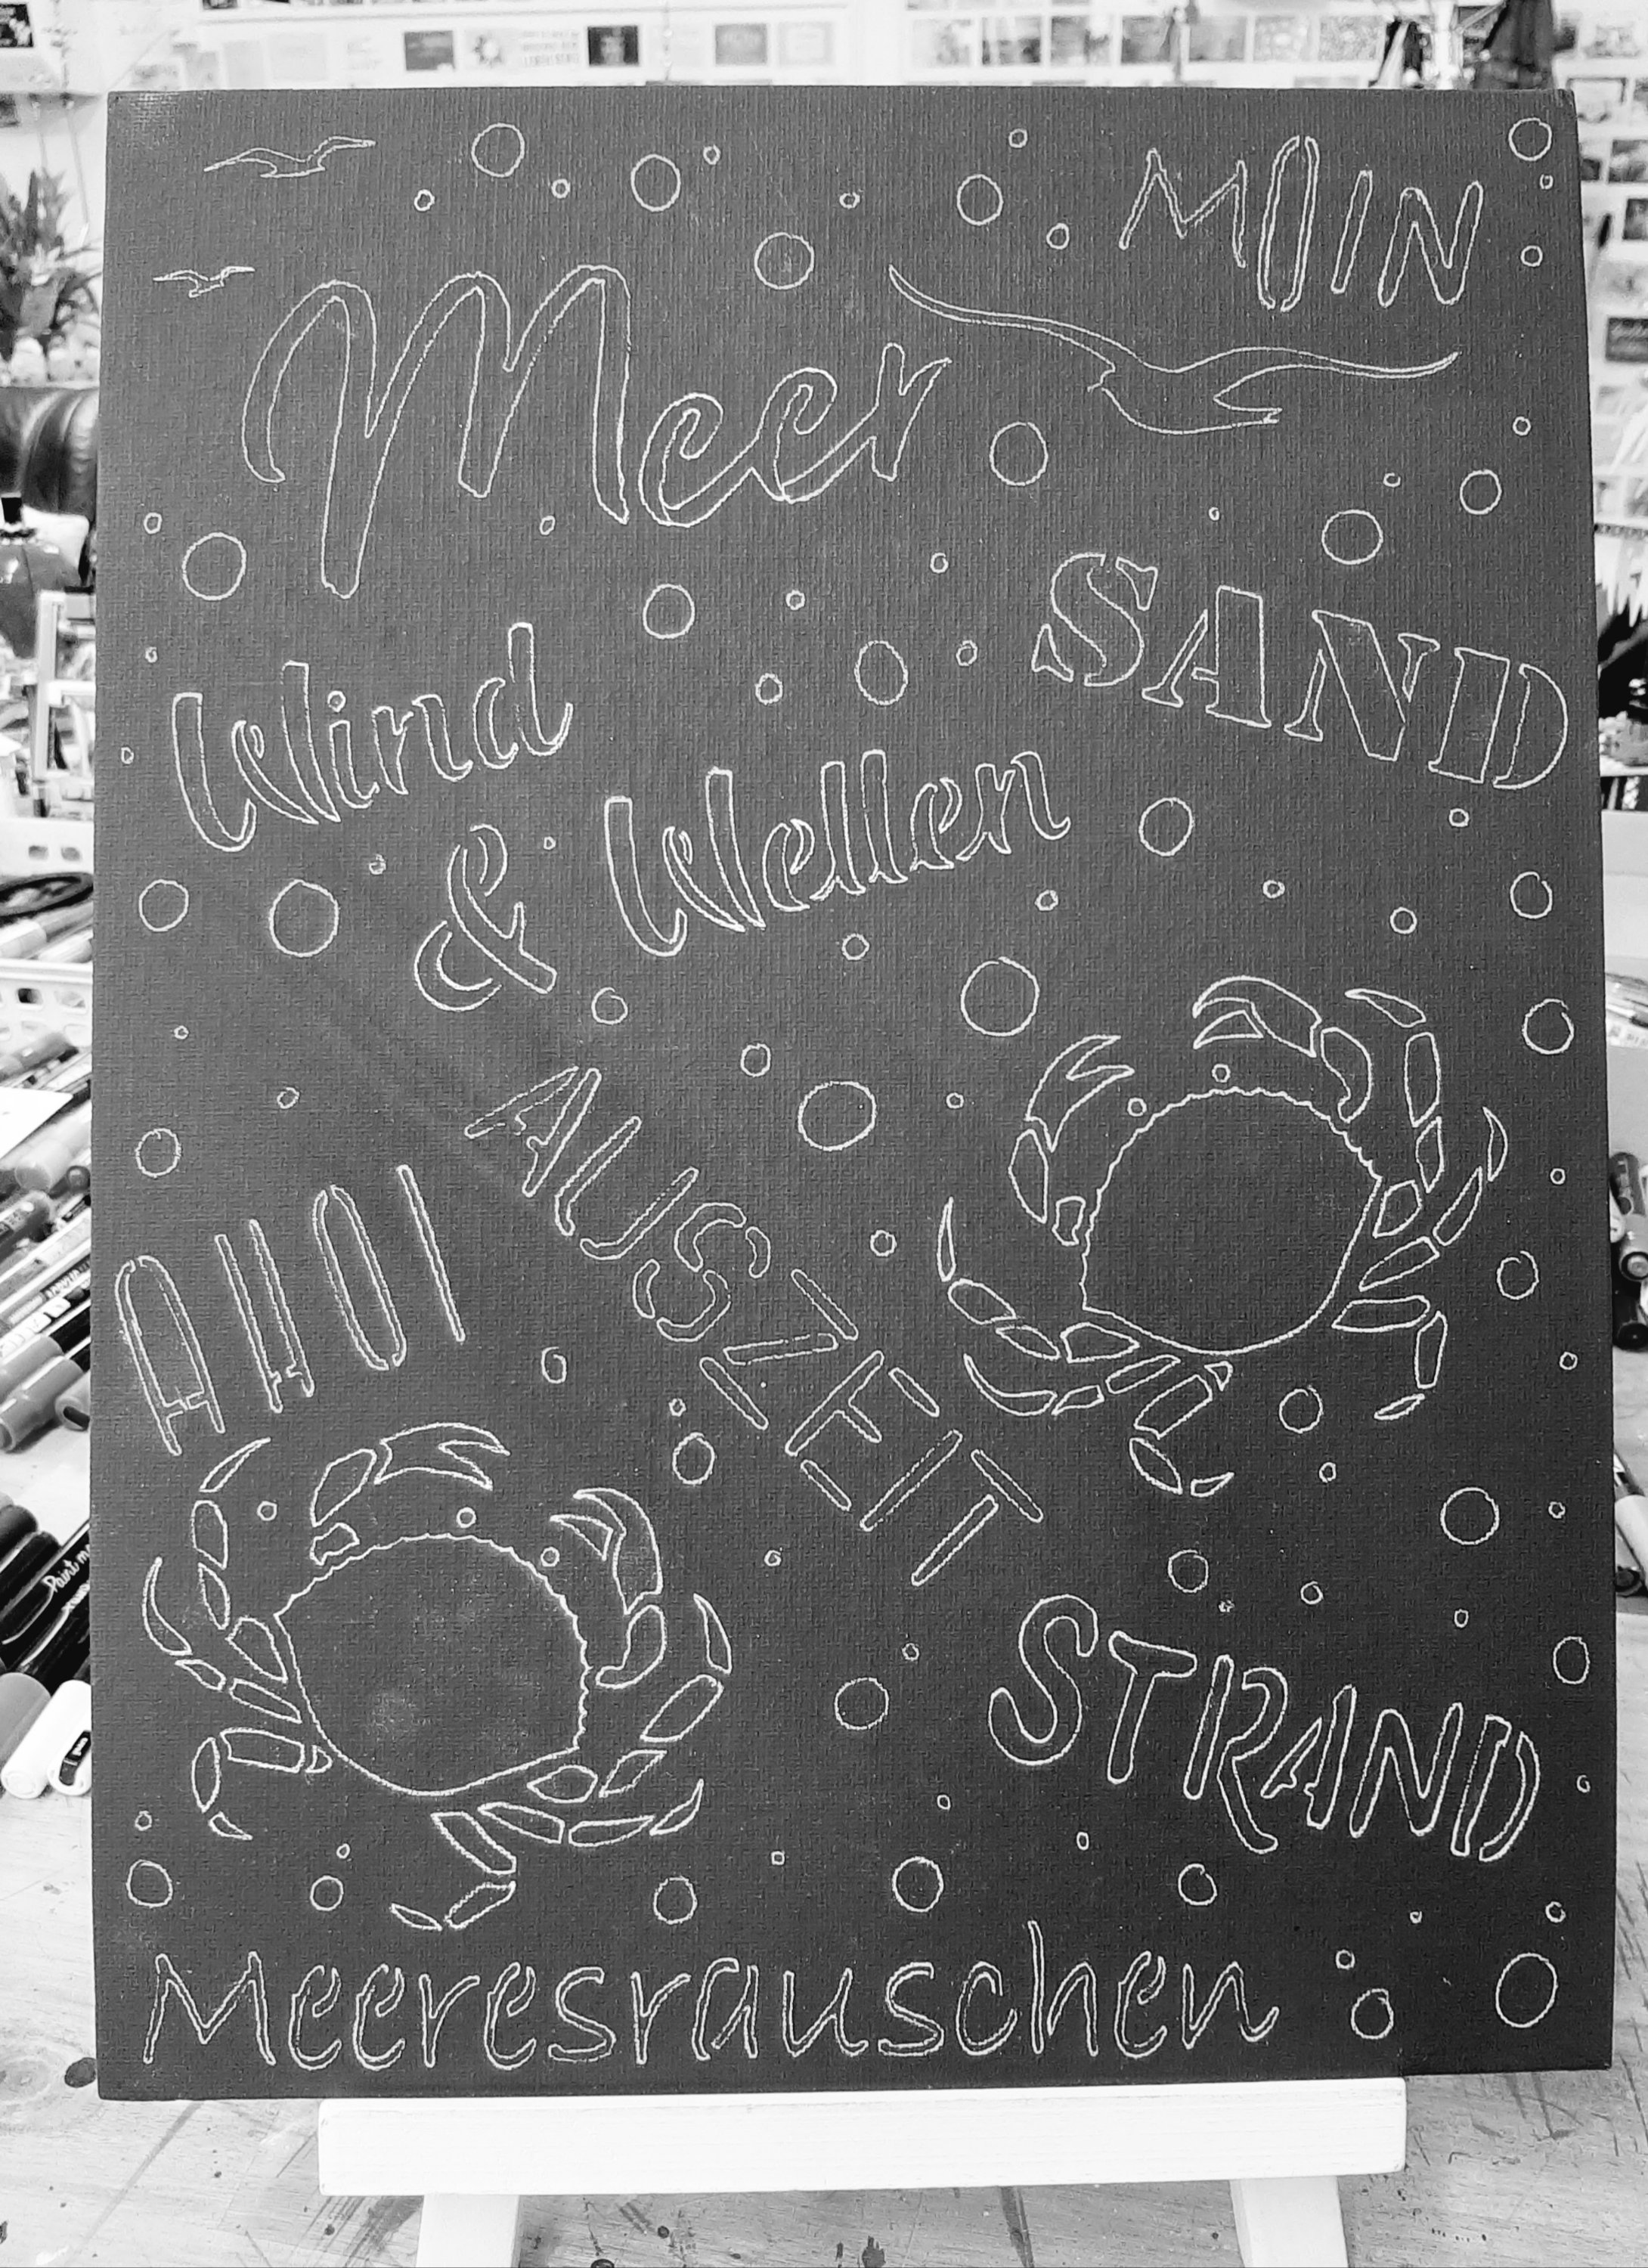 MOIN
Meer
SAND
Wind
& Wellen
AUSZEIT
AHOI
STRAND
Meeresrauschen
Paint m